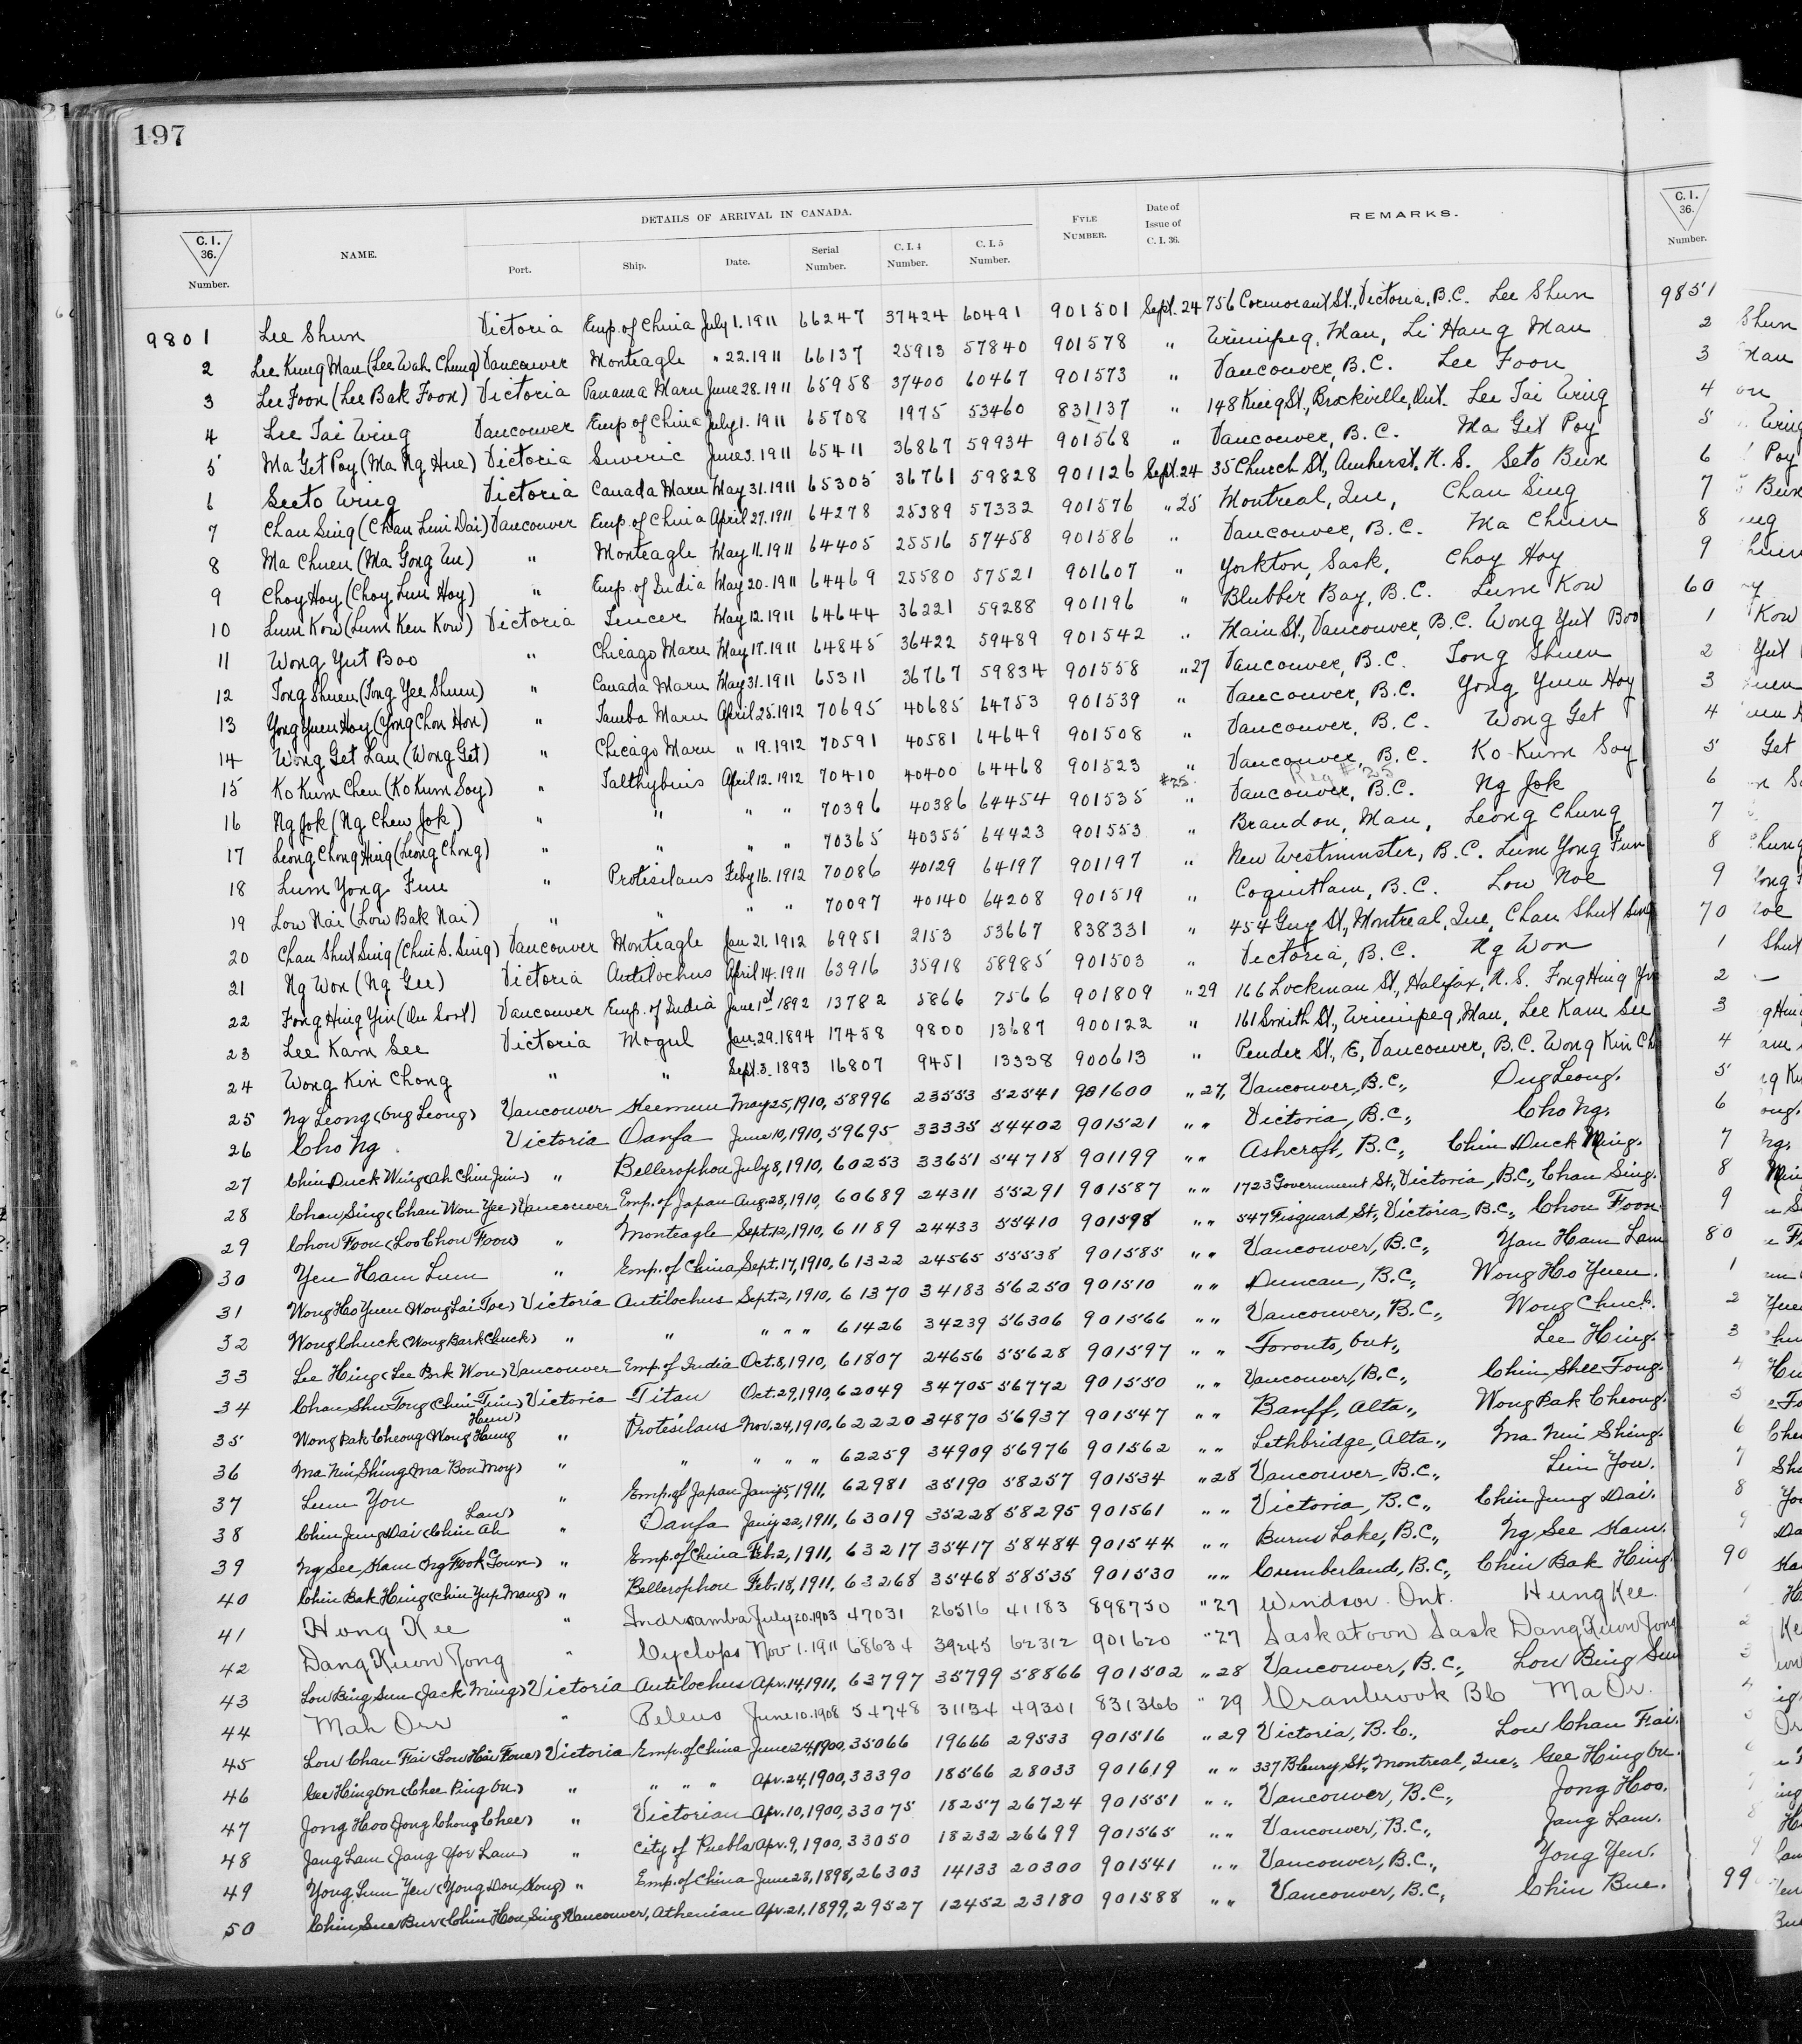 197
DETAILS OF ARRIVAL IN CANADA.
C. I. 36. Number. NAME. Port. Ship. Date. Serial Number. C. I. 4 Number. C. I. 5 Number. FYLE NUMBER. Date of Issue of C. I. 36. REMARKS. C. I. 36. Number.
9801 Lee Shun Victoria Emp. of China July 1. 1911 66247 37424 60491 901501 Sept. 24 756 Cormorant St., Victoria, B.C. Lee Shun 9851
2 Lee Kung Man (Lee Wah Chung) Vancouver Monteagle " 22. 1911 66137 25913 57840 901578 " Winnipeg, Man, Li Hang Man 2
3 Lee Foon (Lee Bak Foon) Victoria Panama Maru June 28. 1911 65958 37400 60467 901573 " Vancouver, B.C. Lee Foon 3
4 Lee Tai Wing Vancouver Emp. of China July 1. 1911 65708 1975 53460 831137 " 148 King St., Brockville, Ont. Lee Tai Wing 4
5 Ma Get Poy (Ma Ng Hue) Victoria Suveric June 3. 1911 65411 36867 59934 901568 " Vancouver, B.C. Ma Get Poy 5
6 Seeto Wing Victoria Canada Maru May 31. 1911 65305 36761 59828 901126 Sept. 24 35 Church St., Amherst, N.S. Seto Bun 6
7 Chan Sing (Chan Lim Dai) Vancouver Emp. of China April 27. 1911 64278 25389 57332 901576 " 25 Montreal, Que, Chan Sing 7
8 Ma Chuen (Ma Gong Uu) " Monteagle May 11. 1911 64405 25516 57458 901586 " Vancouver, B.C. Ma Chuen 8
9 Choy Hoy (Choy Lun Hoy) " Emp. of India May 20. 1911 64469 25580 57521 901607 " Yorkton, Sask, Choy Hoy 9
10 Lum Kow (Lum Ken Kow) Victoria Teucer May 12. 1911 64644 36221 59288 901196 " Blubber Bay, B.C. Lum Kow 60
11 Wong Yut Boo " Chicago Maru May 17. 1911 64845 36422 59489 901542 " Main St., Vancouver, B.C. Wong Yut Boo 1
12 Tong Shuen (Tong Yee Shuen) " Canada Maru May 31. 1911 65311 36767 59834 901558 " 27 Vancouver, B.C. Tong Shuen 2
13 Yong Yuen Hoy (Yong Chon Hon) " Tamba Maru April 25. 1912 70695 40685 64753 901539 " Vancouver, B.C. Yong Yuen Hoy 3
14 Wong Get Lau (Wong Get) " Chicago Maru " 19. 1912 70591 40581 64649 901508 " Vancouver, B.C. Wong Get 4
15 Ko Kum Chen (Ko Kum Soy) " Talthybius April 12. 1912 70410 40400 64468 901523 " Vancouver, B.C. Ko Kum Soy 5
16 Ng Jok (Ng Chew Jok) " " " " 70396 40386 64454 901535 #25 " Vancouver, B.C. Ng Jok 6
17 Leong Chong Hing (Leong Chong) " " " " 70365 40355 64423 901553 " Brandon, Man, Leong Chung 7
18 Lum Yong Fun " Protisilaus Feby 16. 1912 70086 40129 64197 901197 " New Westminster, B.C. Lum Yong Fun 8
19 Low Nai (Low Bak Nai) " " " " 70097 40140 64208 901519 " Coquitlam, B.C. Low Noe 9
20 Chan Shut Sing (Chin S. Sing) Vancouver Monteagle Jan 21. 1912 69951 2153 53667 838331 " 454 Guy St., Montreal, Que, Chan Shut Sing 70
21 Ng Won (Ng Gee) Victoria Antilochus April 14. 1911 63916 35918 58985 901503 " Victoria, B.C. Ng Won 1
22 Fong Hing Yin (On Soot) Vancouver Emp. of India June 1st 1892 13782 5866 7566 901809 " 29 166 Lockman St., Halifax, N.S. Fong Hing Yin 2
23 Lee Kam See Victoria Mogul Jan. 29. 1894 17458 9800 13687 900122 " 161 Smith St., Winnipeg, Man, Lee Kam See 3
24 Wong Kin Chong " " Sept. 3. 1893 16807 9451 13338 900613 " Pender St., E, Vancouver, B.C. Wong Kin Ch 4
25 Ng Leong (Ong Leong) Vancouver Keemun May 25, 1910, 58996 23553 52541 901600 " 27, Vancouver, B.C., Ong Leong. 5
26 Cho Ng. Victoria Oanfa June 10, 1910, 59695 33335 54402 901521 " " Victoria, B.C., Cho Ng. 6
27 Chin Duck Wing (Ah Chin Jim) " Bellerophon July 8, 1910, 60253 33651 54718 901199 " " Ashcroft, B.C., Chin Duck Ming. 7
28 Chan Sing (Chan Won Yee) Vancouver Emp. of Japan Aug. 28, 1910, 60689 24311 55291 901587 " " 1723 Government St., Victoria, B.C., Chan Sing. 8
29 Chou Foon (Loo Chou Foon) " Monteagle Sept. 12, 1910, 61189 24433 55410 901598 " " 547 Fisguard St., Victoria, B.C., Chou Foon 9
30 Yen Ham Lum " Emp. of China Sept. 17, 1910, 61322 24565 55538 901585 " " Vancouver, B.C., Yan Ham Lam 80
31 Wong Ho Yuen (Wong Lai Toe) Victoria Antilochus Sept. 2, 1910, 61370 34183 56250 901510 " " Duncan, B.C., Wong Ho Yuen. 1
32 Wong Chuck (Wong Bark Chuck) " " " " " 61426 34239 56306 901566 " " Vancouver, B.C., Wong Chuck. 2
33 Lee Hing (Lee Bok Won) Vancouver Emp. of India Oct. 8, 1910, 61807 24656 55628 901597 " " Toronto, Ont., Lee Hing. 3
34 Chan Shu Tong (Chin Tim) Victoria Titan Oct. 29, 1910, 62049 34705 56772 901550 " " Vancouver, B.C., Chin Shee Tong. 4
35 Wong Pak Cheong (Wong Heung Hun) " Protesilaus Nov. 24, 1910, 62220 34870 56937 901547 " " Banff, Alta., Wong Pak Cheong. 5
36 Ma Nin Shing (Ma Bon Moy) " " " " " 62259 34909 56976 901562 " " Lethbridge, Alta., Ma Nin Shing. 6
37 Lum You " Emp. of Japan Jan'y 5, 1911, 62981 35190 58257 901534 " 28 Vancouver, B.C., Lim You. 7
38 Chin Jung Dai (Chin Ah Lan) " Oanfa Jan'y 22, 1911, 63019 35228 58295 901561 " " Victoria, B.C., Chin Jung Dai. 8
39 Ng See Kam (Ng Fook Goun) " Emp. of China Feb. 2, 1911, 63217 35417 58484 901544 " " Burns Lake, B.C., Ng See Kam. 9
40 Chin Bak Hing (Chin Yup Mang) " Bellerophon Feb. 18, 1911, 63268 35468 58535 901530 " " Cumberland, B.C., Chin Bak Hing. 90
41 Hong Kee " Indrasamba July 20. 1903 47031 26516 41183 898750 " 27 Windsor Ont. Hung Kee
42 Dang Kuon Jong " Cyclops Nov 1. 1911 68634 39245 62312 901620 " 27 Saskatoon Sask Dang Kuon Jong 2
43 Lou Bing Sun (Jack Ming) Victoria Antilochus Apr. 14, 1911, 63797 35799 58866 901502 " 28 Vancouver, B.C., Lou Bing Sun 3
44 Mah Orr " Peleus June 10. 1908 54748 31134 49301 831366 " 29 Cranbrook BC Ma Or. 4
45 Low Chan Fai (Low Hai Foue) Victoria Emp. of China June 24, 1900, 35066 19666 29533 901516 " 29 Victoria, B.C., Low Chan Fai.
46 Gee Hing On (Chee Ping On) " " " " Apr. 24, 1900, 33390 18566 28033 901619 " " 337 Bleury St., Montreal, Que., Gee Hing On.
47 Jong Hoo (Jong Chong Chee) " Victorian Apr. 10, 1900, 33075 18257 26724 901551 " " Vancouver, B.C., Jong Hoo.
48 Jang Lam (Jang Yor Lam) " City of Puebla Apr. 9, 1900, 33050 18232 26699 901565 " " Vancouver, B.C., Jang Lam.
49 Yong Sum Yen (Yong Don Kong) " Emp. of China June 28, 1898, 26303 14133 20300 901541 " " Vancouver, B.C., Yong Yen.
50 Chin Sue Bue (Chin Hou Sing) Vancouver, Athenian Apr. 21, 1899, 29527 12452 23180 901588 " " Vancouver, B.C., Chin Bue. 99